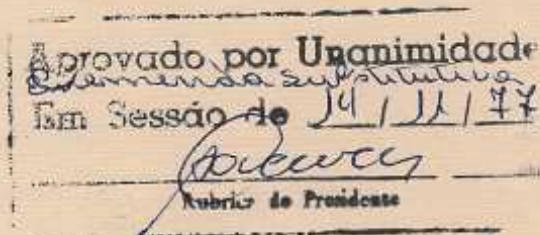 Aprovado por Unanimidade
a emenda substitutiva
Em Sessão de 14 / 11 / 77
Rubrica do Presidente